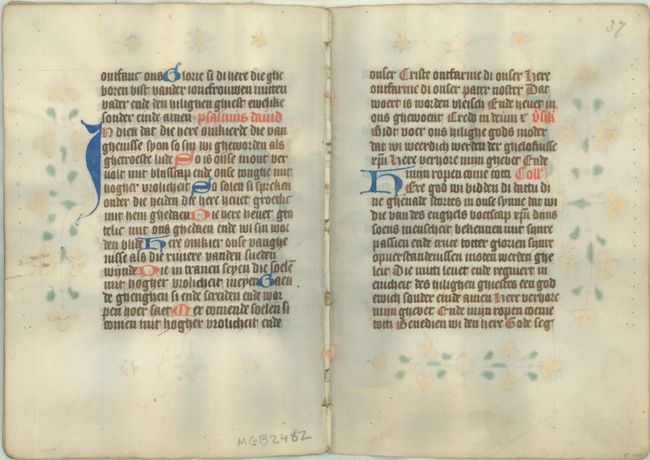 ontfanc ons Glorie si di here die ghe
boren bist vander ioncfrouwen mitten
vader ende den hilighen gheest ewelike
sonder einde amen psalmus david
In dien dat die here omkierde die van
ghenisse syon so sin wi gheworden als
ghetroeste lude So is onse mont ver
vult mit blyscap ende onse tonghe mit
hogher vrolicheit So solen si spreken
onder die heiden die here hevet groetlic
mit hem ghedaen Die here hevet gro
telic mit ons ghedaen ende wi sin wor
den blide Here omkier onse vanghe
nisse als die riviere vanden sueden
winde Die in tranen seyen die solen
mit hogher vrolicheit meyen Gaen
de ghenghen si ende screiden ende wor
pen hoer saet Mer comende soelen si
comen mit hogher vrolicheit ende
MGB2482
37
onser Criste ontfarme di onser Here
ontfarme di onser pater noster Dat
woert is worden vleisch Ende hevet in
ons ghewoent Cred in deum
Bidt voer ons hilighe gods moder
dat wi weerdich werden der ghelofnisse
xpi Here verhore mijn ghebet Ende
mijn ropen come totti Coll
Here god wi bidden di datu di
ne ghenade stortes in onse synne dat wi
die van des enghels boetscap xpi dijns
soens menscheit bekennen mit sijnre
passien ende cruce toter glorien sijnre
opverstandenissen moten werden ghe
leit Die mitti levet ende regniert in
enicheit des hilighen gheestes een god
ewich sonder einde amen Here verhore
mijn ghebet Ende mijn ropen come
totti Benedien wi den here Gode seg